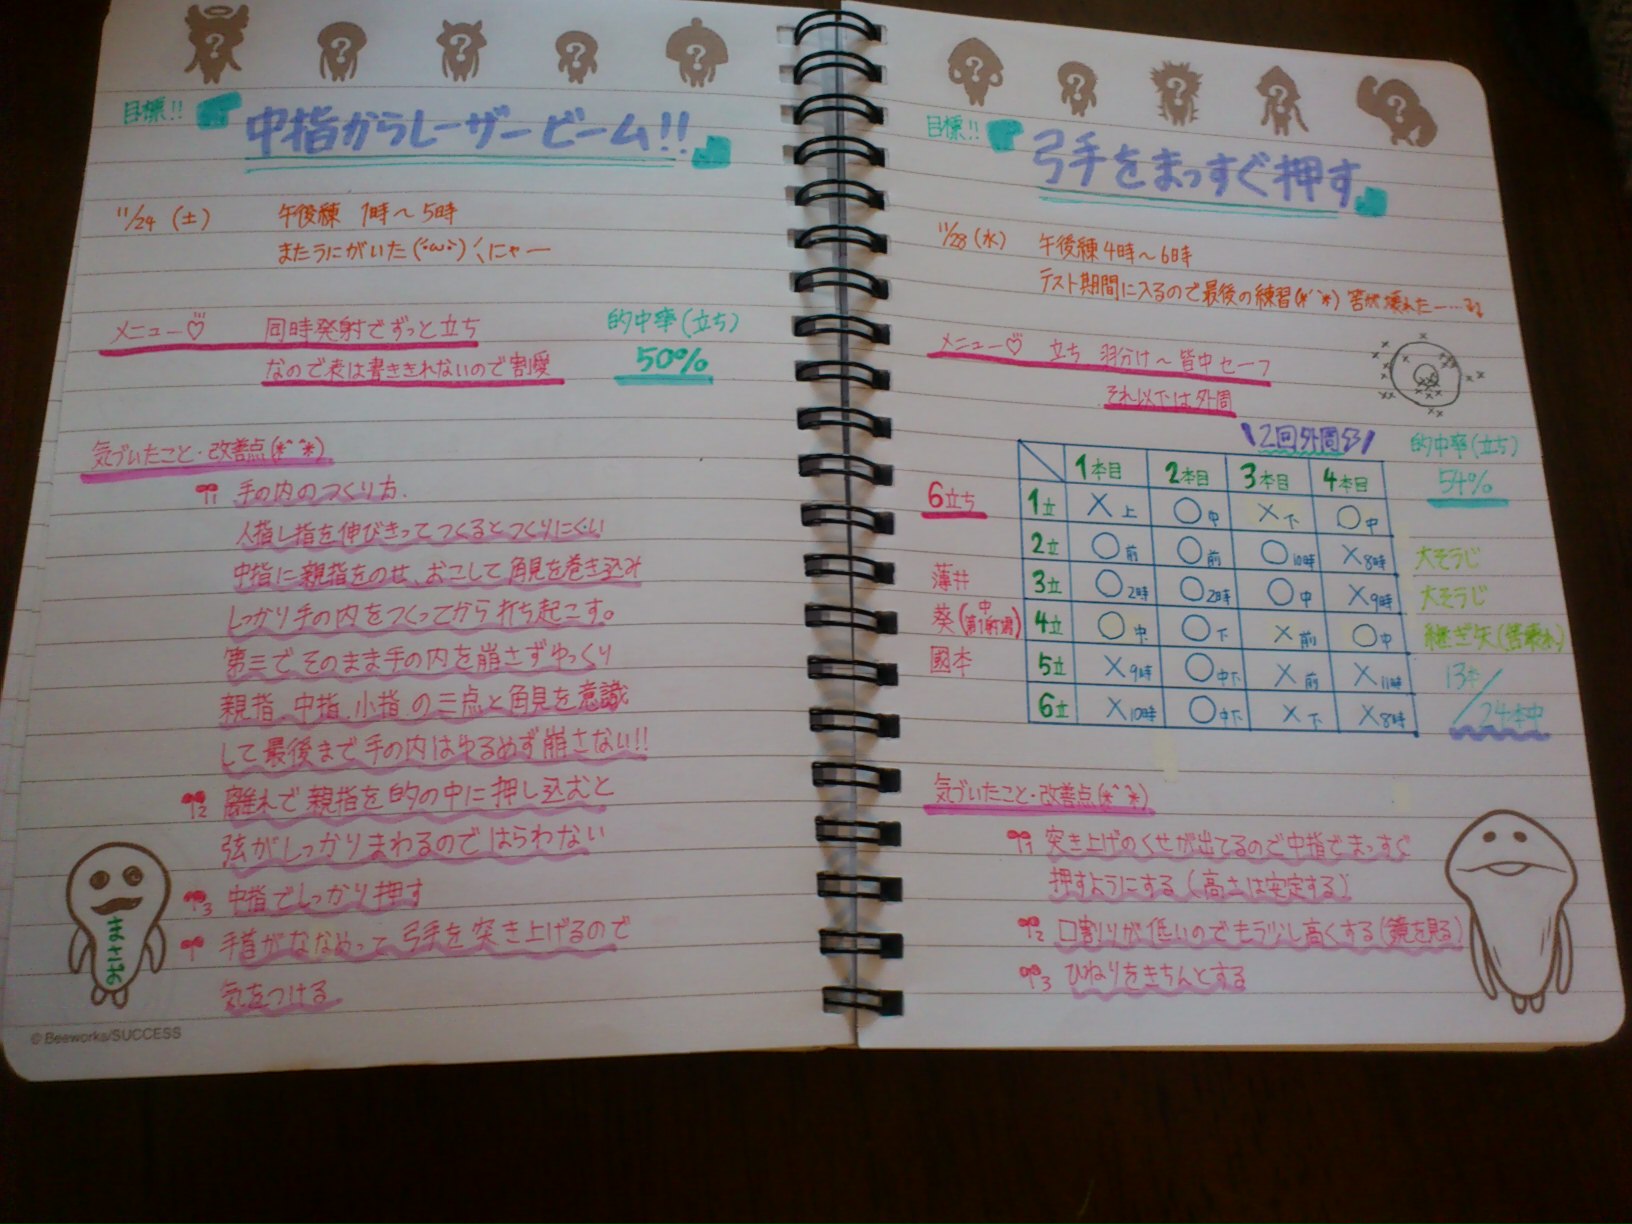 目標!!
中指からレーザービーム!!
11/24 (土) 午後練 1時～5時
またうにがいた(´・ω・`)くにゃー
メニュー♡ 同時発射でずっと立ち
なので表は書ききれないので割愛
的中率(立ち)
50%
気づいたこと・改善点(*^^*)
1 手の内のつくり方.
人指し指を伸びきってつくるとつくりにくい
中指に親指をのせ、おこして角見を巻き込み
しっかり手の内をつくってから打ち起こす。
第三でそのまま手の内を崩さずゆっくり
親指、中指、小指の三点と角見を意識
して最後まで手の内はゆるめず崩さない!!
2 離れで親指を的の中に押し込むと
弦がしっかりまわるのではらわない
3 中指でしっかり押す
手首がななめって弓手を突き上げるので
気をつける
まさお
© Beeworks/SUCCESS
目標!!
弓手をまっすぐ押す
11/28 (水) 午後練4時～6時
テスト期間に入るので最後の練習(*^^*) 筈が壊れたー…
メニュー♡ 立ち 羽分け～皆中セーフ
それ以下は外周
2回外周
的中率(立ち)
54%
6立ち
1本目 2本目 3本目 4本目
1立 ×上 ○中 ×下 ○中
2立 ○前 ○前 ○10時 ×8時 大そうじ
3立 ○2時 ○2時 ○中 ×9時 大そうじ
4立 ○中 ○下 ×前 ○中 継ぎ矢(筈壊れ)
5立 ×9時 ○中下 ×前 ×11時
6立 ×10時 ○中下 ×下 ×8時
薄井
葵(中 第1射場)
國本
13本/24本中
気づいたこと・改善点(*^^*)
1 突き上げのくせが出てるので中指でまっすぐ
押すようにする(高さは安定する)
2 口割りが低いのでもう少し高くする(鏡を見る)
3 ひねりをきちんとする